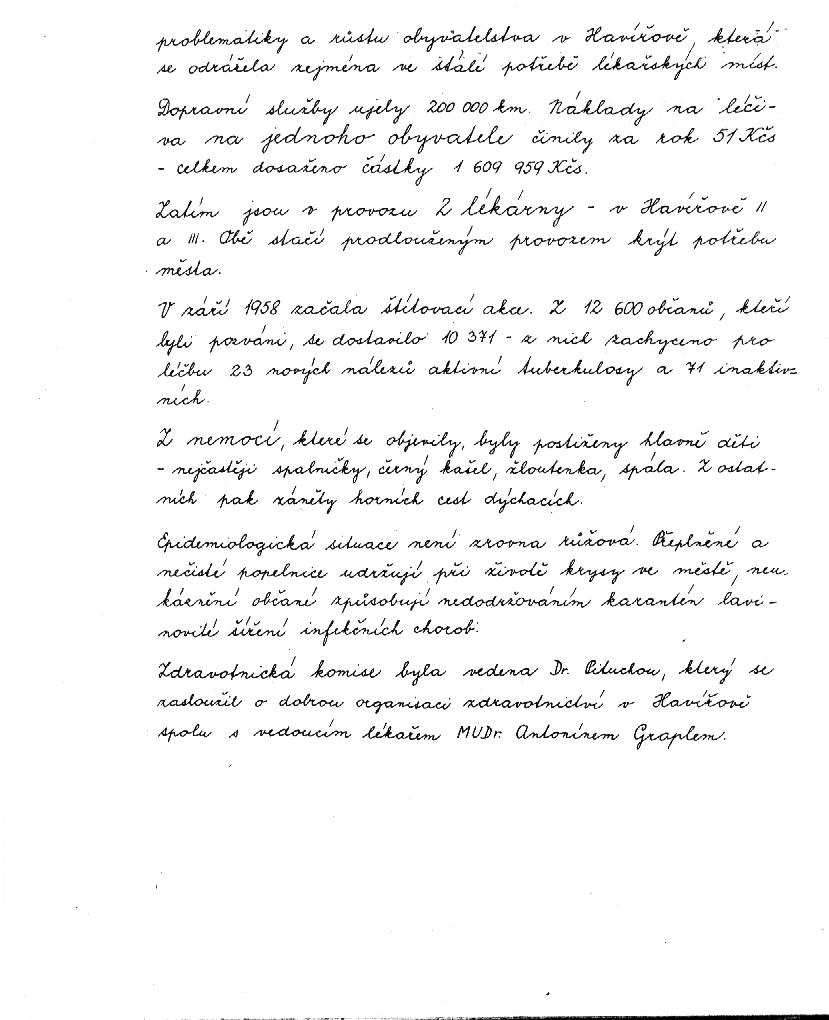 problematiky a růstu obyvatelstva v Havířově, která
se odrážela zejména ve stálé potřebě lékařských míst.
Dopravní služby ujely 200 000 km. Náklady na léči-
va na jednoho obyvatele činily za rok 51 Kčs
- celkem dosaženo částky 1 609 959 Kčs.
Zatím jsou v provozu 2 lékárny - v Havířově II
a III. Obě stačí prodlouženým provozem krýt potřebu
města.
V září 1958 začala štítovací akce. Z 12 600 občanů, kteří
byli pozváni, se dostavilo 10 371 - z nich zachyceno pro
léčbu 23 nových nálezů aktivní tuberkulosy a 71 inaktiv=
ních.
Z nemocí, které se objevily, byly postiženy hlavně děti
- nejčastěji spalničky, černý kašel, žloutenka, spála. Z ostat-
ních pak záněty horních cest dýchacích.
Epidemiologická situace není zrovna růžová. Přeplněné a
nečisté popelnice udržují při životě krysy ve městě, neu-
káznění občané způsobují nedodržováním karantén lavi-
novité šíření infekčních chorob.
Zdravotnická komise byla vedena Dr. Pituchou, který se
zasloužil o dobrou organisaci zdravotnictví v Havířově
spolu s vedoucím lékařem MUDr. Antonínem Graplem.